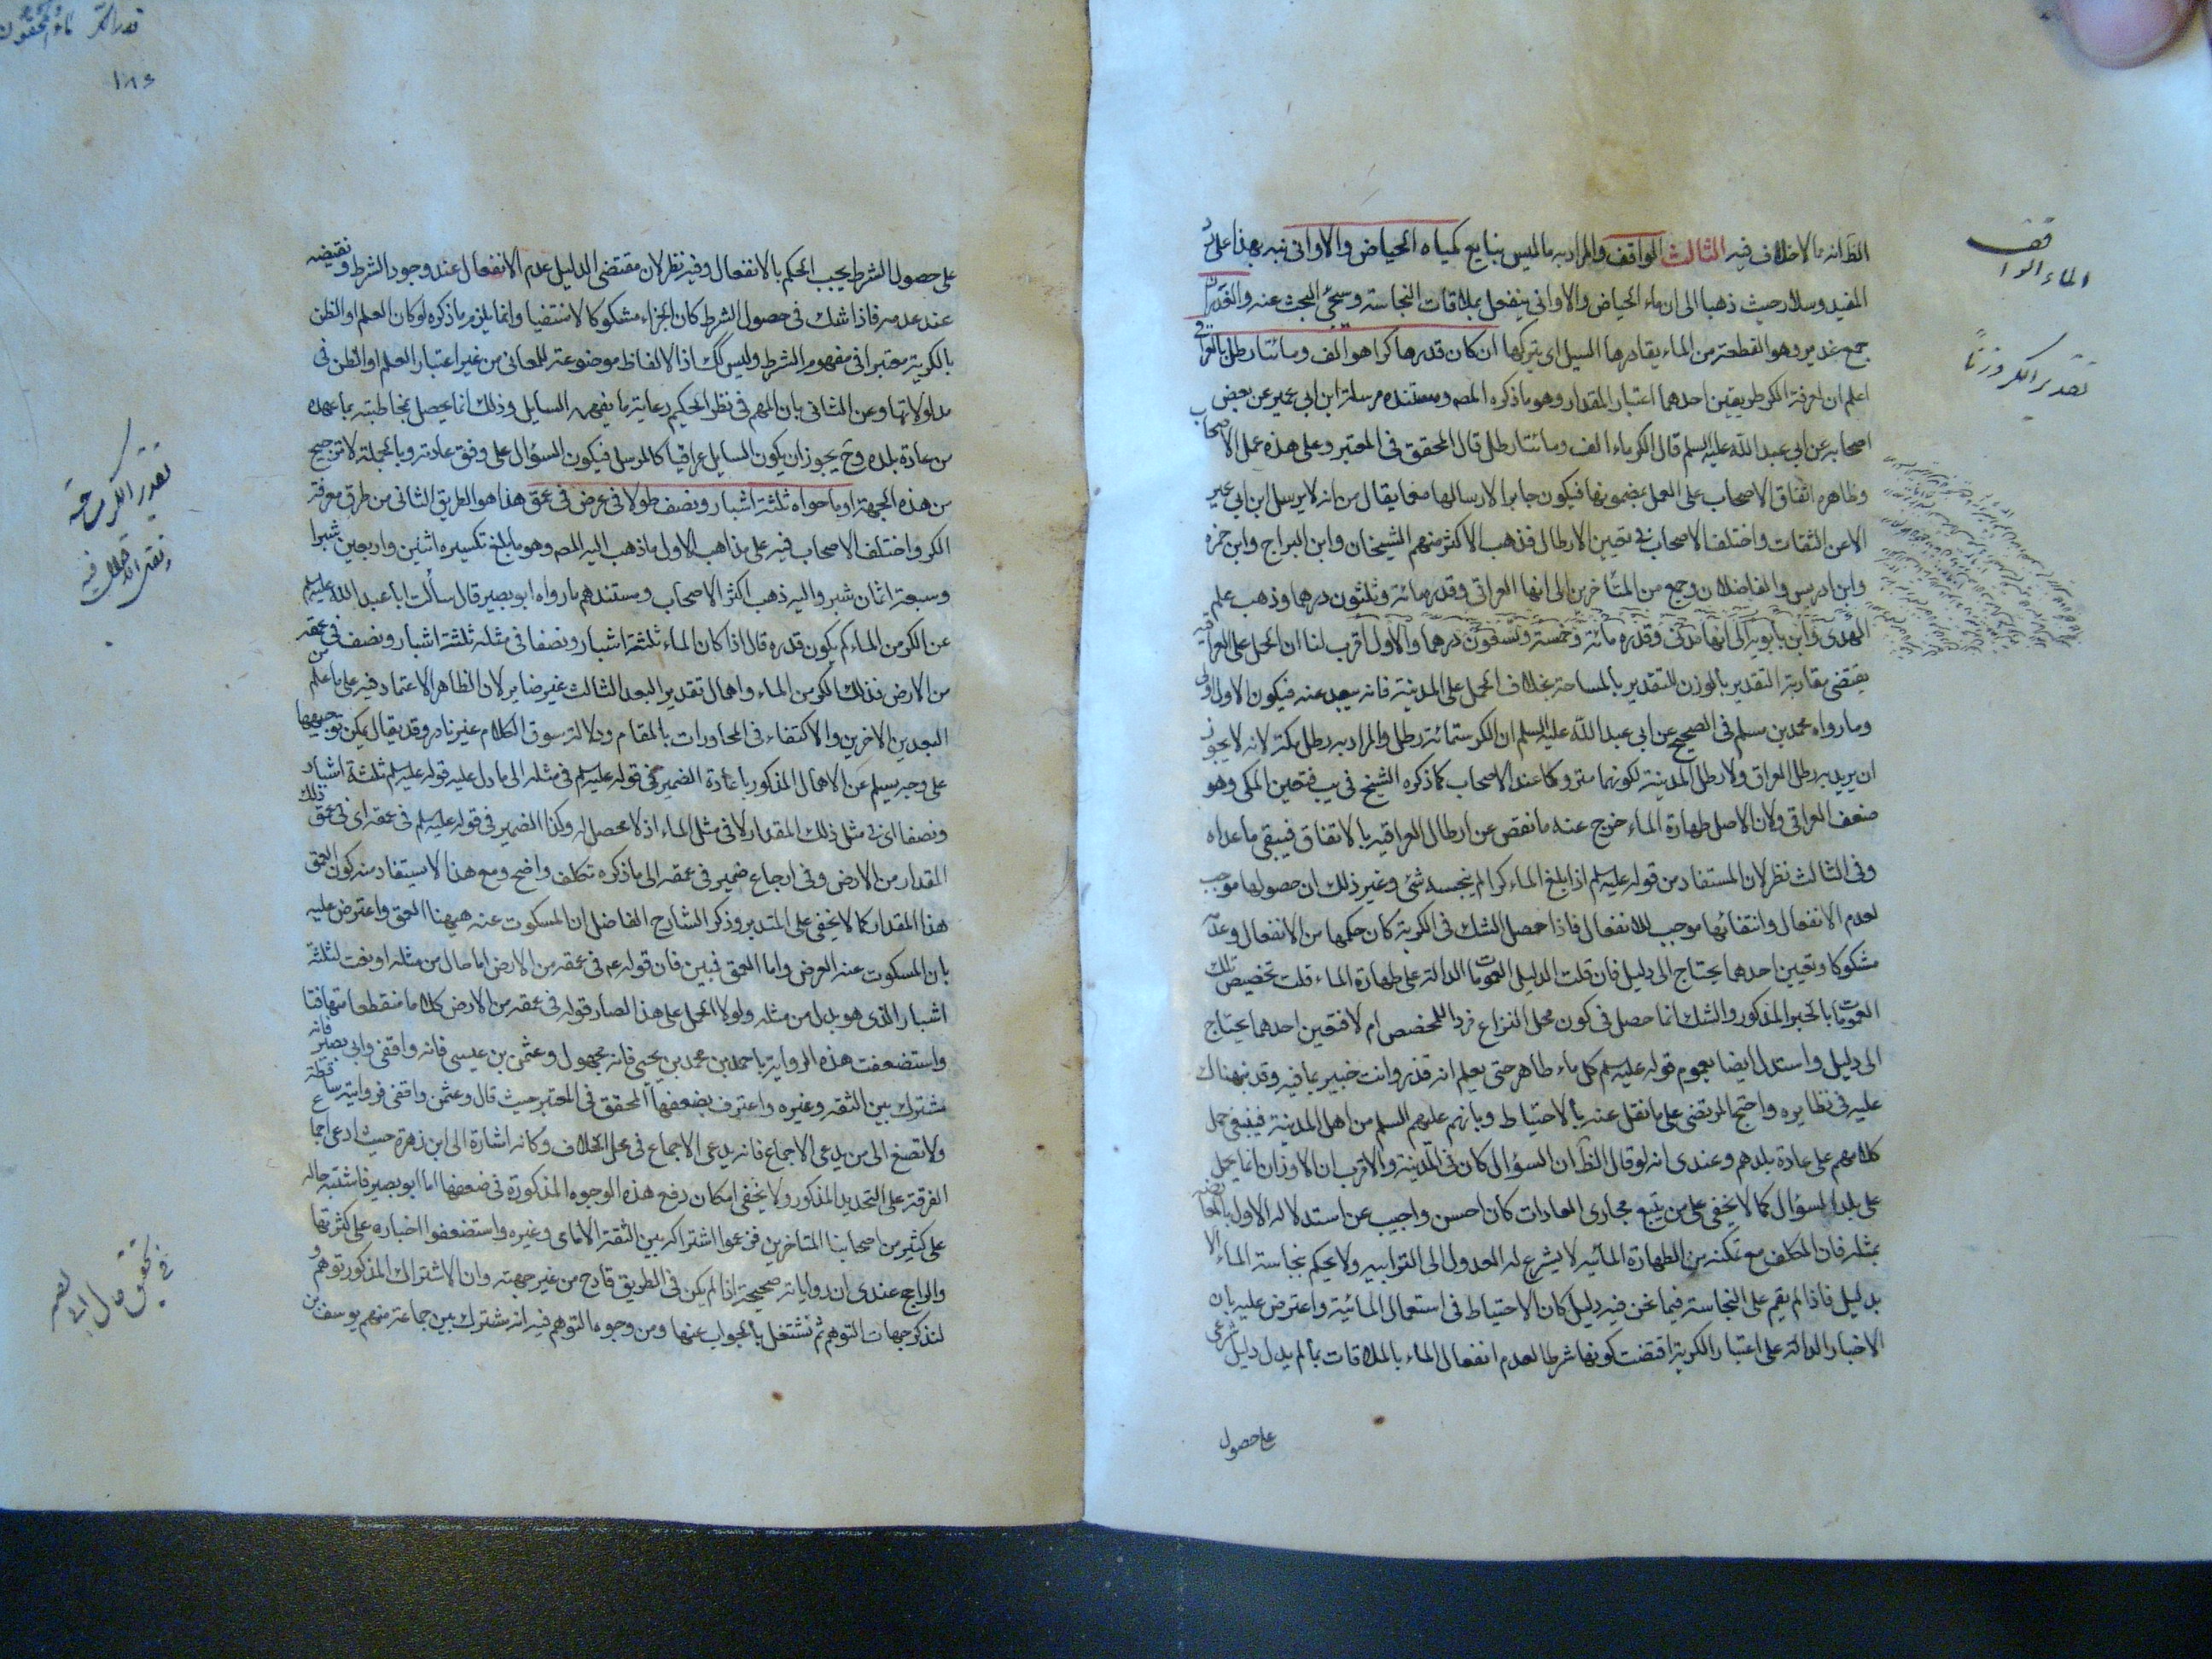 الماء الواقف
تقدير الكر وزناً
الظ انه مما لاخلاف فيه الثالث الواقف والمراد به ما ليس بنابع كمياه الحياض والاوانى نبه بهذا على رد
المفيد وسلار حيث ذهبا الى ان ماء الحياض والاوانى ينفعل بملاقات النجاسة وسيجئ البحث عنه والغدران
جمع غدير وهو القطعة من الماء يغادرها السيل اى يتركها ان كان قدرها كرا هو الف ومائتا رطل بالعراقى
اعلم ان لمعرفة الكر طريقين احدهما اعتبار المقدار وهو ما ذكره المصه ومستنده مرسلة ابن ابى عمير عن بعض
اصحابه عن ابى عبد الله عليه السلم قال الكر ماء الف ومائتا رطل قال المحقق فى المعتبر وعلى هذه عمل الاصحاب
وظاهره اتفاق الاصحاب على العمل بمضمونها فيكون جابرا لارسالها مع ما يقال من انه لا يرسل ابن ابى عمير
الا عن الثقات واختلف الاصحاب فى تعيين الارطال فذهب الاكثر منهم الشيخان وابن البراج وابن حمزة
وابن ادريس والفاضلان وجمع من المتأخرين الى انها العراقى وقدره مائة وثلثون درهما وذهب علم
الهدى وابن بابويه الى انها مدنى وقدره مائة وخمسة وتسعون درهما والاول اقرب لنا ان الحمل على العراقية
يقتضى مقاربة التقدير بالوزن للتقدير بالمساحة بخلاف الحمل على المدنية فانه يبعد عنه فيكون الاول اولى
وما رواه محمد بن مسلم فى الصحيح عن ابى عبد الله عليه السلم ان الكر ستمائة رطل والمراد به رطل مكة لانه لا يجوز
ان يريد به رطل العراق ولا رطل المدينة لكونهما متروكا عند الاصحاب كما ذكره الشيخ فى يب فتعين المكى وهو
ضعف العراقى ولان الاصل طهارة الماء خرج عنه ما نقص عن ارطال العراقية بالاتفاق فيبقى ما عداه
وفى الثالث نظر لان المستفاد من قوله عليه السلم اذا بلغ الماء كرا لم ينجسه شئ وغير ذلك ان حصولها موجب
لعدم الانفعال وانتفائها موجب للانفعال فاذا حصل الشك فى الكرية كان حكمها من الانفعال وعدمه
مشكوكا وتعيين احدهما يحتاج الى دليل فان قلت الدليل العمومات الدالة على طهارة الماء قلت تخصيص تلك
العمومات بالخبر المذكور والشك انما حصل فى كون محل النزاع فردا للمخصص ام لا فتعين احدهما يحتاج
الى دليل واستدل ايضا بعموم قوله عليه السلم كل ماء طاهر حتى يعلم انه قذر وانت خبير بما فيه وقد نبهناك
عليه فى نظايره واحتج المرتضى على ما نقل عنه بالاحتياط وبانهم عليهم السلم من اهل المدينة فينبغى حمل
كلامهم على عادة بلدهم وعندى انه لو قال الظ ان السؤال كان فى المدينة والاقرب ان الاوزان انما يحمل
على بلد السؤال كما لا يخفى على من يتبع مجارى العادات كان احسن واجيب عن استدلاله الاول بالمعارضة
بمثله فان المكلف مع تمكنه من الطهارة المائية لا يشرع له العدول الى الترابية ولا يحكم بنجاسة الماء الا
بدليل فاذا لم يقم على النجاسة فيما نحن فيه دليل كان الاحتياط فى استعمال المائية واعترض عليه بان
الاخبار الدالة على اعتبار الكرية اقتضت كونها شرطا لعدم انفعال الماء بالملاقات فما لم يدل دليل شرعى
على حصول
١٨٤
على حصول الشرط يجب الحكم بالانفعال وفيه نظر لان مقتضى الدليل عدم الانفعال عند وجود الشرط ونقيضه
عند عدمه فاذا شك فى حصول الشرط كان الجزاء مشكوكا لا منتفيا وانما يلزم ما ذكره لو كان العلم او الظن
بالكرية معتبرا فى مفهوم الشرط وليس كك اذ الالفاظ موضوعة للمعانى من غير اعتبار العلم او الظن فى
مدلولاتها وعن الثانى بان المهم فى نظر الحكيم رعاية ما يفهمه السايل وذلك انما يحصل بمخاطبته بما عهده
من عادة بلده وح يجوز ان يكون السايل عراقيا كالمرسل فيكون السؤال على وفق عادته وبالجملة لا ترجيح
من هذه الجهة او ما حواه ثلثة اشبار ونصف طولا فى عرض فى عمق هذا هو الطريق الثانى من طرق معرفة
الكر واختلف الاصحاب فيه على مذاهب الاول ما ذهب اليه المصه وهو ما بلغ تكسيره اثنين واربعين شبرا
وسبعة اثمان شبر واليه ذهب اكثر الاصحاب ومستندهم ما رواه ابو بصير قال سألت ابا عبد الله عليه السلم
عن الكر من الماء كم يكون قدره قال اذا كان الماء ثلثة اشبار ونصفا فى مثله ثلثة اشبار ونصف فى عمقه
من الارض فذلك الكر من الماء واهمال تقدير البعد الثالث غير ضاير لان الظاهر الاعتماد فيه على ما علم من
البعدين الاخرين والاكتفاء فى المحاورات بالمقام ودلالة سوق الكلام غير نادر وقد يقال يمكن توجيهها
على وجه يسلم عن الاهمال المذكور باعادة الضمير فى قوله عليه السلم فى مثله الى ما دل عليه قوله عليه السلم ثلثة اشبار
ونصفا اى فى مثل ذلك المقدار لا فى مثل الماء اذ لا محصل له وكذا الضمير فى قوله عليه السلم فى عمقه اى فى عمق ذلك
المقدار من الارض وفى ارجاع ضمير فى عمقه الى ما ذكره تكلف واضح ومع هذا لا يستفاد منه كون العمق
هذا المقدار كما لا يخفى على المتدبر وذكر الشارح الفاضل ان المسكوت عنه هيهنا العمق واعترض عليه
بان المسكوت عنه العرض واما العمق فبين فان قوله عم فى عمقه من الارض اما حال من مثله او نعت لثلثة
اشبار الذى هو بدل من مثله ولولا الحمل على هذا لصار قوله فى عمقه من الارض كلاما منقطعا متهافتا
واستضعفت هذه الرواية باحمد بن محمد بن يحيى فانه مجهول وعثمن بن عيسى فانه واقفى وابى بصير فانه
مشترك بين الثقه وغيره واعترف بضعفها المحقق فى المعتبر حيث قال وعثمن واقفى فروايته ساقطة
ولا تصغ الى من يدعى الاجماع فانه يدعى الاجماع فى محل الخلاف وكانه اشارة الى ابن زهرة حيث ادعى اجماع
الفرقة على التحديد المذكور ولا يخفى امكان دفع هذه الوجوه المذكورة فى ضعفها اما ابو بصير فاشتبه حاله
على كثير من اصحابنا المتاخرين فزعموا اشتراكه بين الثقة الامامى وغيره واستضعفوا اخباره على كثرتها
والراجح عندى ان رواياته صحيحة اذا لم يكن فى الطريق قادح من غير جهته وان الاشتراك المذكور توهم و
لنذكر جهات التوهم ثم نشتغل بالجواب عنها ومن وجوه التوهم فيه انه مشترك بين جماعة منهم يوسف بن